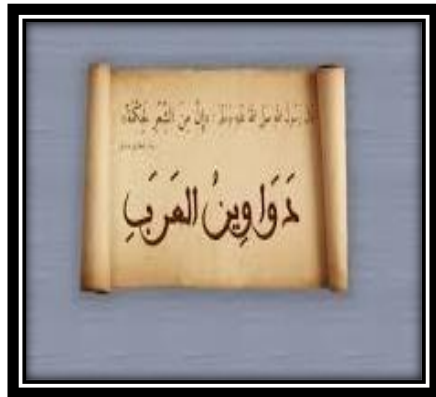 قال رسول الله صلى الله عليه وسلم : «وإنّ مِنَ الشِّعْرِ لَحِكْمَةً»
دَوَاوِينُ العَرَبِ